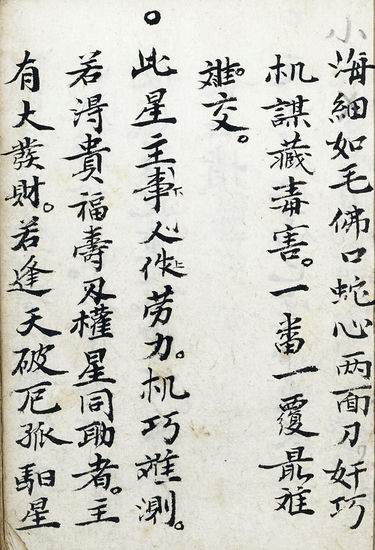 海細如毛佛口蛇心两面刀奸巧
机謀藏毒害。一番一覆最难
难交。
此星主事人作劳力。机巧难測。
若得貴福壽刄權星同助者。主
有大發財。若逢天破厄孤馹星